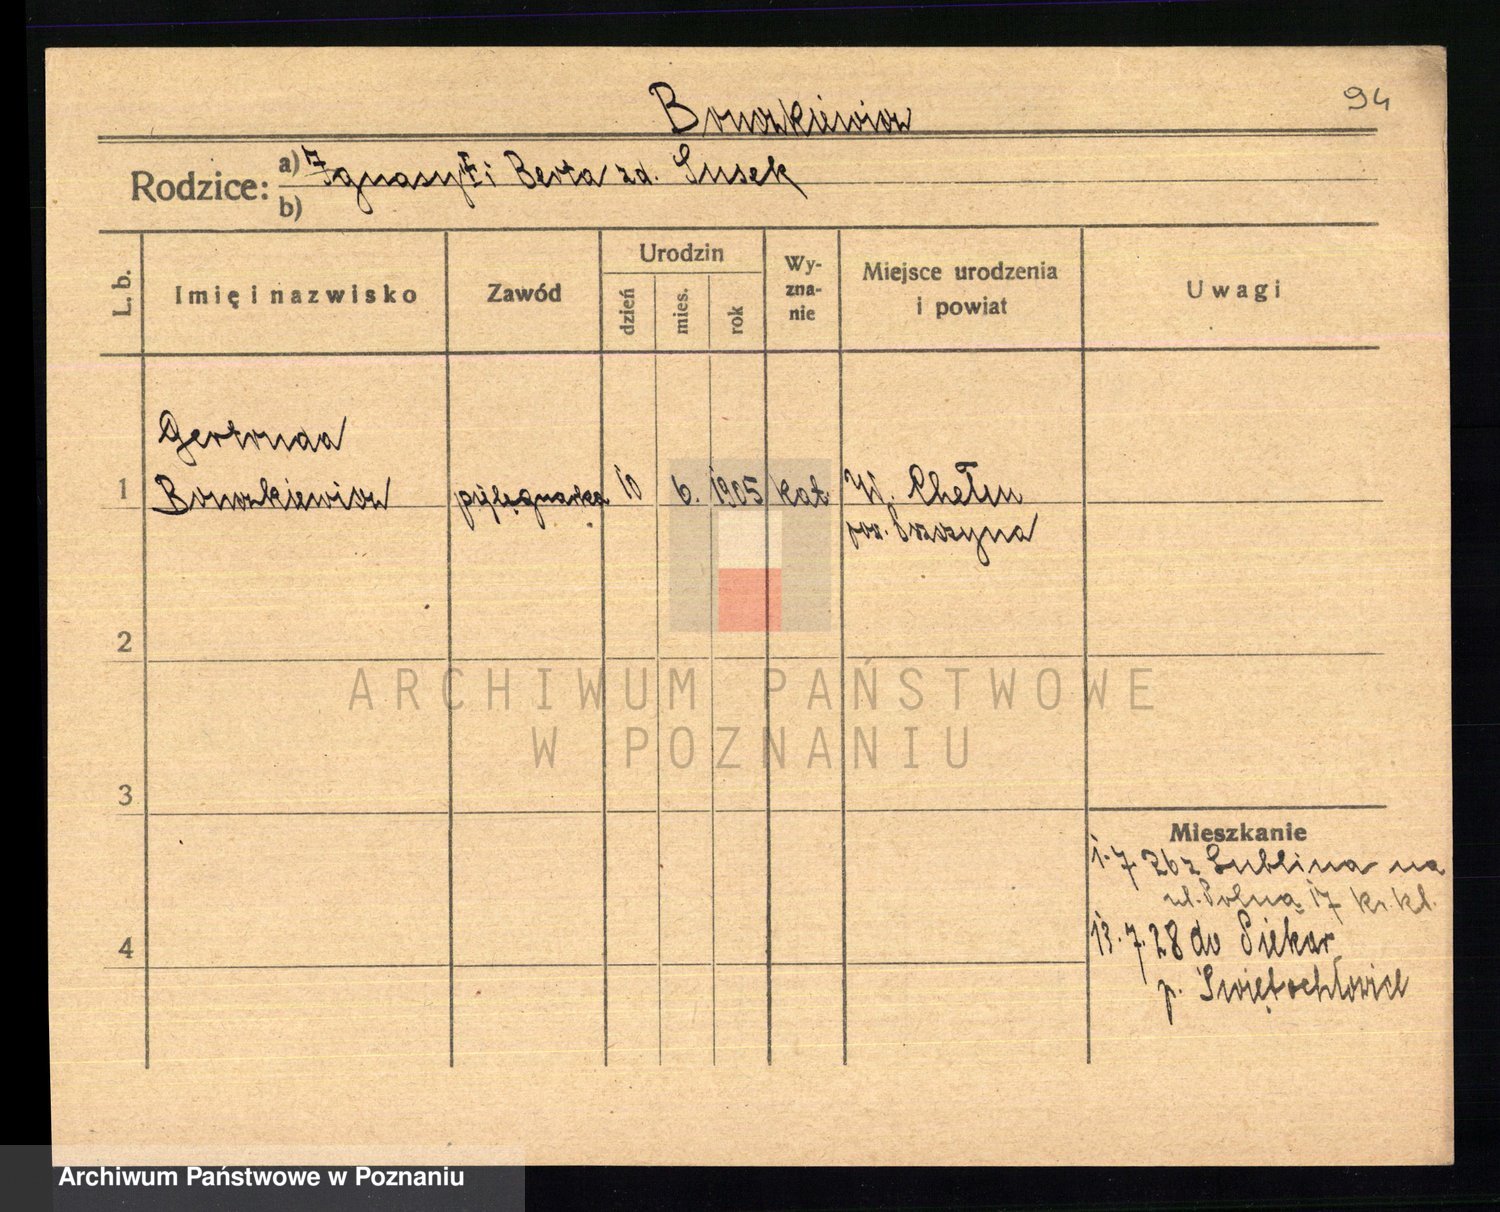 94
Rodzice: a) Ignacy † i Berta zd. Susek
b)
L. b.
Imię i nazwisko
Zawód
Urodzin
dzień
mies.
rok
Wy-
zna-
nie
Miejsce urodzenia
i powiat
Uwagi
Gertruda
1 pielęgnarka 10 6. 1905 kat W. Chełm
pow. Pszczyna
2
3
4
Mieszkanie
1.7.26 z Lublina na
ul. Polną 17 kr. kl.
13.7.28 do Piekar
p. Świętochłowice
ARCHIWUM PAŃSTWOWE
W POZNANIU
Archiwum Państwowe w Poznaniu